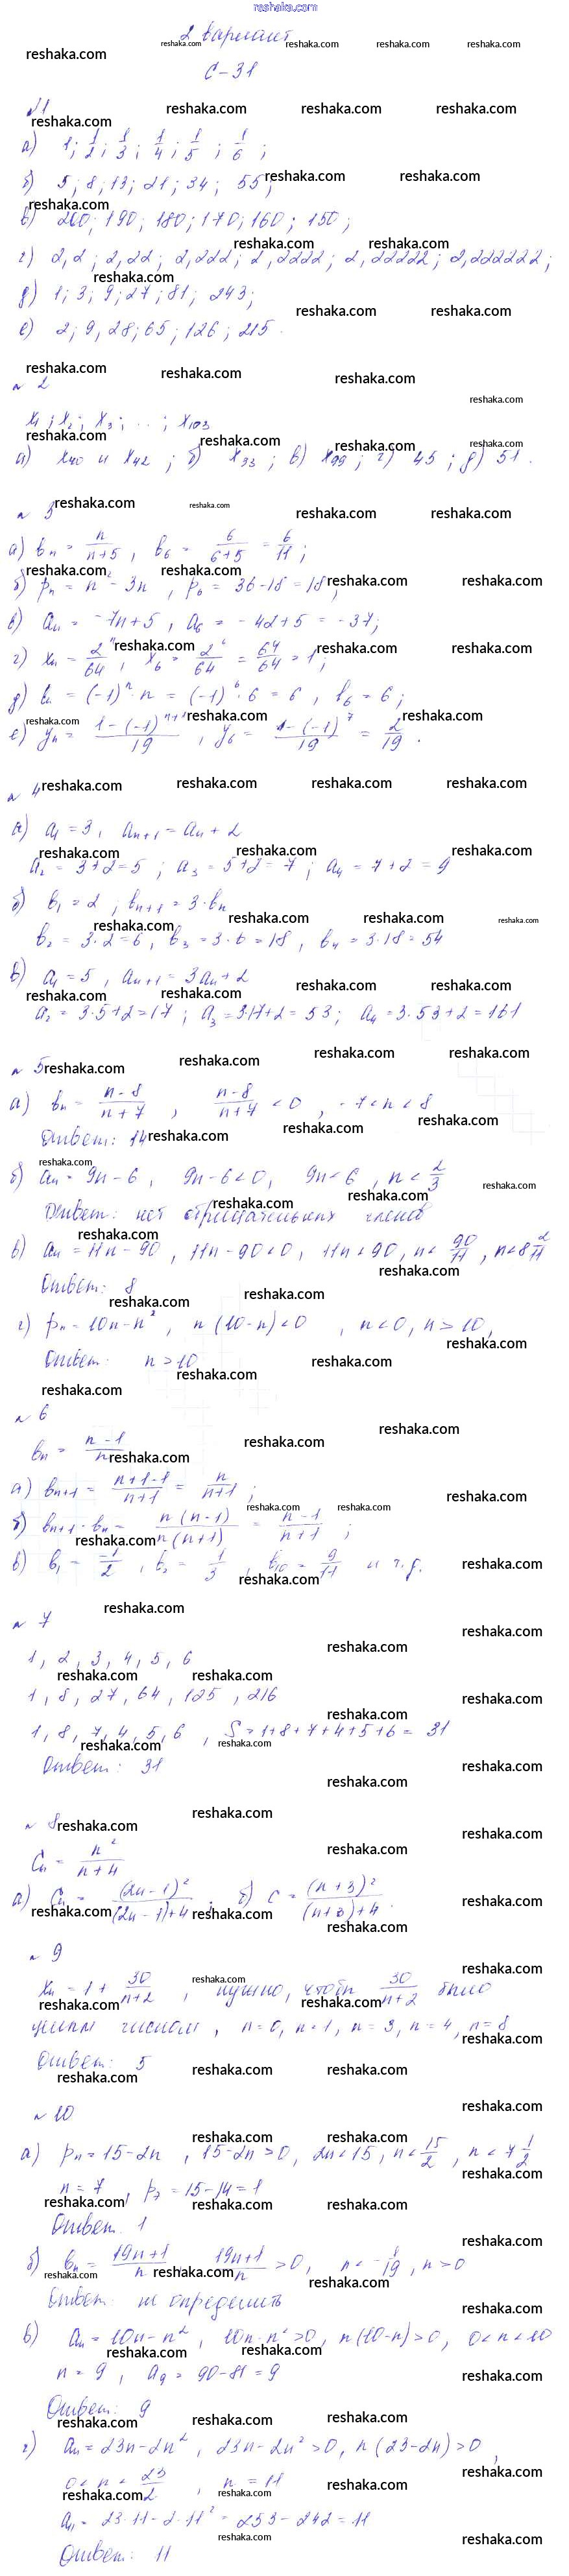 reshaka.com
2 вариант
С-31
№1
а) 1; 1/2; 1/3; 1/4; 1/5; 1/6;
б) 5; 8; 13; 21; 34; 55;
в) 200; 190; 180; 170; 160; 150;
г) 2,2; 2,22; 2,222; 2,2222; 2,22222; 2,222222;
д) 1; 3; 9; 27; 81; 243;
е) 2; 9, 28; 65; 126; 215.
№2
x₁; x₂; x₃; ...; x₁₀₃
а) x₄₀ и x₄₂; б) x₃₃; в) x₉₉; г) 45; д) 51.
№3
а) bₙ = n/(n+5), b₆ = 6/(6+5) = 6/11;
б) pₙ = n² - 3n, p₆ = 36-18 = 18,
в) aₙ = -7n+5, a₆ = -42+5 = -37;
г) xₙ = 2ⁿ/64, x₆ = 2⁶/64 = 64/64 = 1;
д) bₙ = (-1)ⁿ · n = (-1)⁶ · 6 = 6, b₆ = 6;
е) yₙ = (1-(-1)ⁿ⁺¹)/19, y₆ = (1-(-1)⁷)/19 = 2/19.
№4
а) a₁ = 3, aₙ₊₁ = aₙ + 2
a₂ = 3+2 = 5; a₃ = 5+2 = 7; a₄ = 7+2 = 9
б) b₁ = 2; bₙ₊₁ = 3·bₙ
b₂ = 3·2 = 6, b₃ = 3·6 = 18, b₄ = 3·18 = 54
в) a₁ = 5, aₙ₊₁ = 3aₙ + 2
a₂ = 3·5+2 = 17; a₃ = 3·17+2 = 53; a₄ = 3·53+2 = 161
№5
а) bₙ = (n-8)/(n+7), (n-8)/(n+7) < 0, -7 < n < 8
Ответ: 14
б) aₙ = 9n-6, 9n-6<0, 9n<6, n < 2/3
Ответ: нет отрицательных членов
в) aₙ = 11n-90, 11n-90<0, 11n<90, n < 90/11, n < 8 2/11
Ответ: 8
г) pₙ = 10n-n², n(10-n)<0, n<0, n>10,
Ответ: n>10
№6
bₙ = (n-1)/n
а) bₙ₊₁ = (n+1-1)/(n+1) = n/(n+1);
б) bₙ₊₁·bₙ = n(n-1)/(n(n+1)) = (n-1)/(n+1);
в) b₁ = -1/2, b₂ = 1/3, b₁₀ = 9/11 и т.д.
№7
1, 2, 3, 4, 5, 6
1, 8, 27, 64, 125, 216
1, 8, 7, 4, 5, 6, S = 1+8+7+4+5+6 = 31
Ответ: 31
№8
Cₙ = n²/(n+4)
а) Cₙ = (2n-1)²/((2n-1)+4); б) c = (n+3)²/((n+3)+4).
№9
xₙ = 1 + 30/(n+2), нужно, чтобы 30/(n+2) было
целым числом, n=0, n=1, n=3, n=4, n=8
Ответ: 5
№10
а) pₙ = 15-2n, 15-2n>0, 2n<15, n < 15/2, n < 7 1/2
n = 7, p₇ = 15-14 = 1
Ответ. 1
б) bₙ = (19n+1)/n, (19n+1)/n > 0, n < -1/19, n>0
Ответ: не определить
в) aₙ = 10n-n², 10n-n²>0, n(10-n)>0, 0<n<10
n = 9, a₉ = 90-81 = 9
Ответ: 9
г) aₙ = 23n-2n², 23n-2n²>0, n(23-2n)>0,
0 < n < 23/2, n = 11
a₁₁ = 23·11-2·11² = 253-242 = 11
Ответ: 11